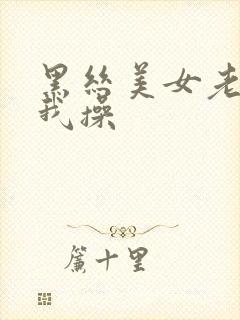 黑丝美女老
我操
簾十里